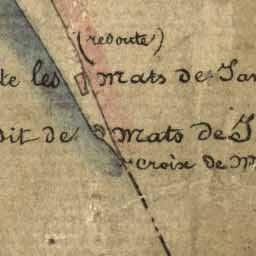 (redoute)
te les mats de Ja
dit de 3 mats de J
croix de M